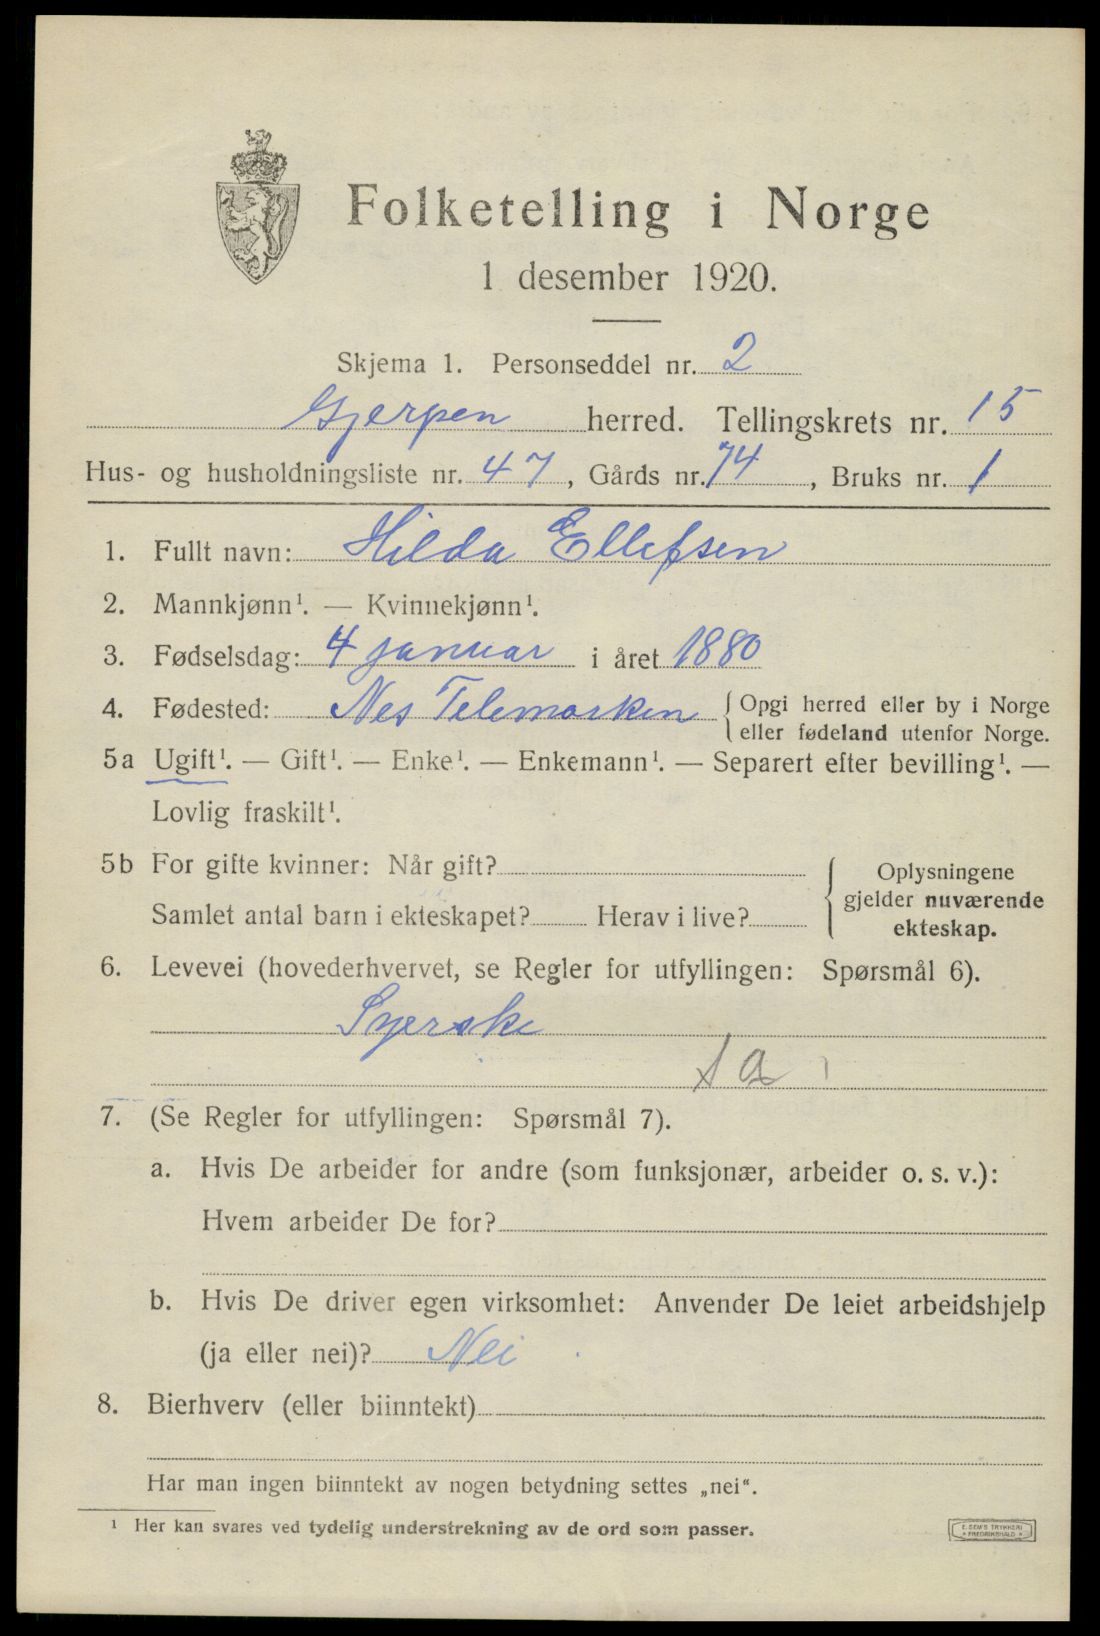 Folketelling i Norge
1 desember 1920.
Skjema 1. Personseddel nr. 2
Gjerpen herred. Tellingskrets nr. 15
Hus- og husholdningsliste nr. 47, Gårds nr. 74, Bruks nr. 1
1. Fullt navn: Hilda Ellefsen
2. Mannkjønn¹. — Kvinnekjønn¹.
3. Fødselsdag: 4 januar i året 1880
4. Fødested: Nes Telemarken { Opgi herred eller by i Norge
eller fødeland utenfor Norge.
5a Ugift¹. — Gift¹. — Enke¹. — Enkemann¹. — Separert efter bevilling¹. —
Lovlig fraskilt¹.
5b For gifte kvinner: Når gift?
Samlet antal barn i ekteskapet? Herav i live?
{ Oplysningene
gjelder nuværende
ekteskap.
6. Levevei (hovederhvervet, se Regler for utfyllingen: Spørsmål 6).
Syerske
7. (Se Regler for utfyllingen: Spørsmål 7).
a. Hvis De arbeider for andre (som funksjonær, arbeider o. s. v.):
Hvem arbeider De for?
b. Hvis De driver egen virksomhet: Anvender De leiet arbeidshjelp
(ja eller nei)? Nei
8. Bierhverv (eller biinntekt)
Har man ingen biinntekt av nogen betydning settes „nei".
¹ Her kan svares ved tydelig understrekning av de ord som passer.
E. SEM'S TRYKKERI
FREDRIKSHALD